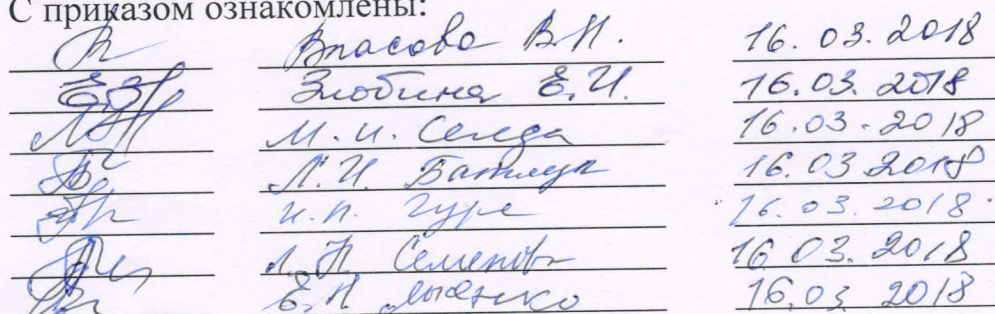 С приказом ознакомлены:
Власова В.Н. 16.03.2018
Злобина Е.И. 16.03.2018
М.И. Середа 16.03.2018
Л.И. 16.03.2018
И.П. Гуре 16.03.2018.
Л.Н. Семенов 16.03.2018
Е.Н. 16.03 2018